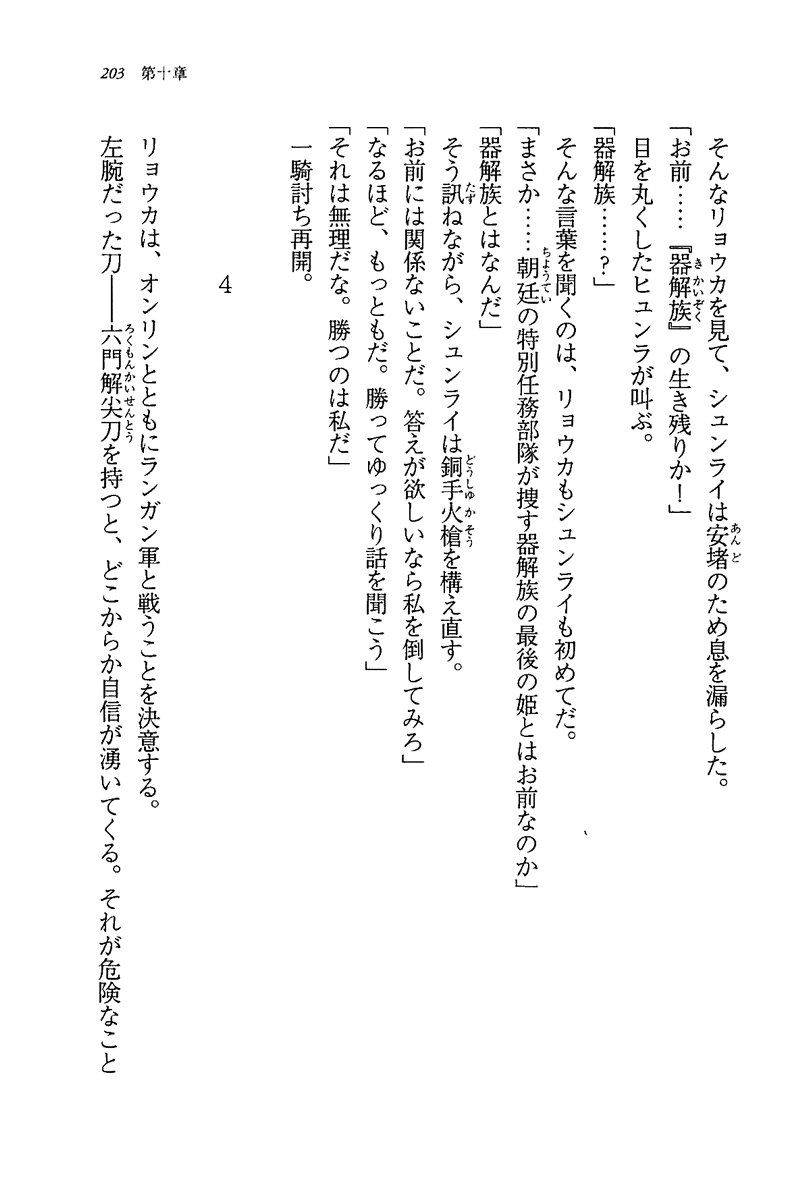 203 第十章
そんなリョウカを見て、シュンライは安堵のため息を漏らした。
「お前……『器解族』の生き残りか！」
目を丸くしたヒュンラが叫ぶ。
「器解族……？」
そんな言葉を聞くのは、リョウカもシュンライも初めてだ。
「まさか……朝廷の特別任務部隊が捜す器解族の最後の姫とはお前なのか」
「器解族とはなんだ」
そう訊ねながら、シュンライは銅手火槍を構え直す。
「お前には関係ないことだ。答えが欲しいなら私を倒してみろ」
「なるほど、もっともだ。勝ってゆっくり話を聞こう」
「それは無理だな。勝つのは私だ」
一騎討ち再開。
4
リョウカは、オンリンとともにランガン軍と戦うことを決意する。
左腕だった刀――六門解尖刀を持つと、どこからか自信が湧いてくる。それが危険なこと